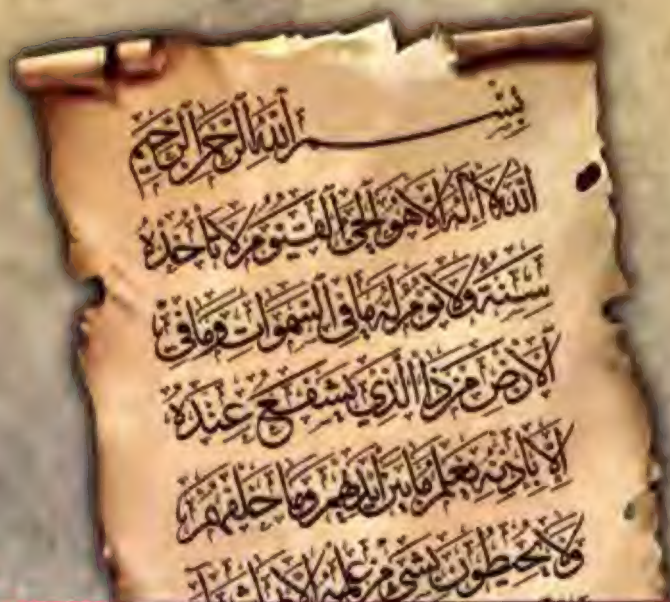 بِسْمِ ٱللَّهِ ٱلرَّحْمَٰنِ ٱلرَّحِيمِ
ٱللَّهُ لَآ إِلَٰهَ إِلَّا هُوَ ٱلْحَيُّ ٱلْقَيُّومُ لَا تَأْخُذُهُ
سِنَةٌ وَلَا نَوْمٌ لَهُ مَا فِي ٱلسَّمَوَاتِ وَمَا فِي
ٱلْأَرْضِ مَن ذَا ٱلَّذِي يَشْفَعُ عِندَهُ
إِلَّا بِإِذْنِهِ يَعْلَمُ مَا بَيْنَ أَيْدِيهِمْ وَمَا خَلْفَهُمْ
وَلَا يُحِيطُونَ بِشَيْءٍ مِنْ عِلْمِهِ إِلَّا